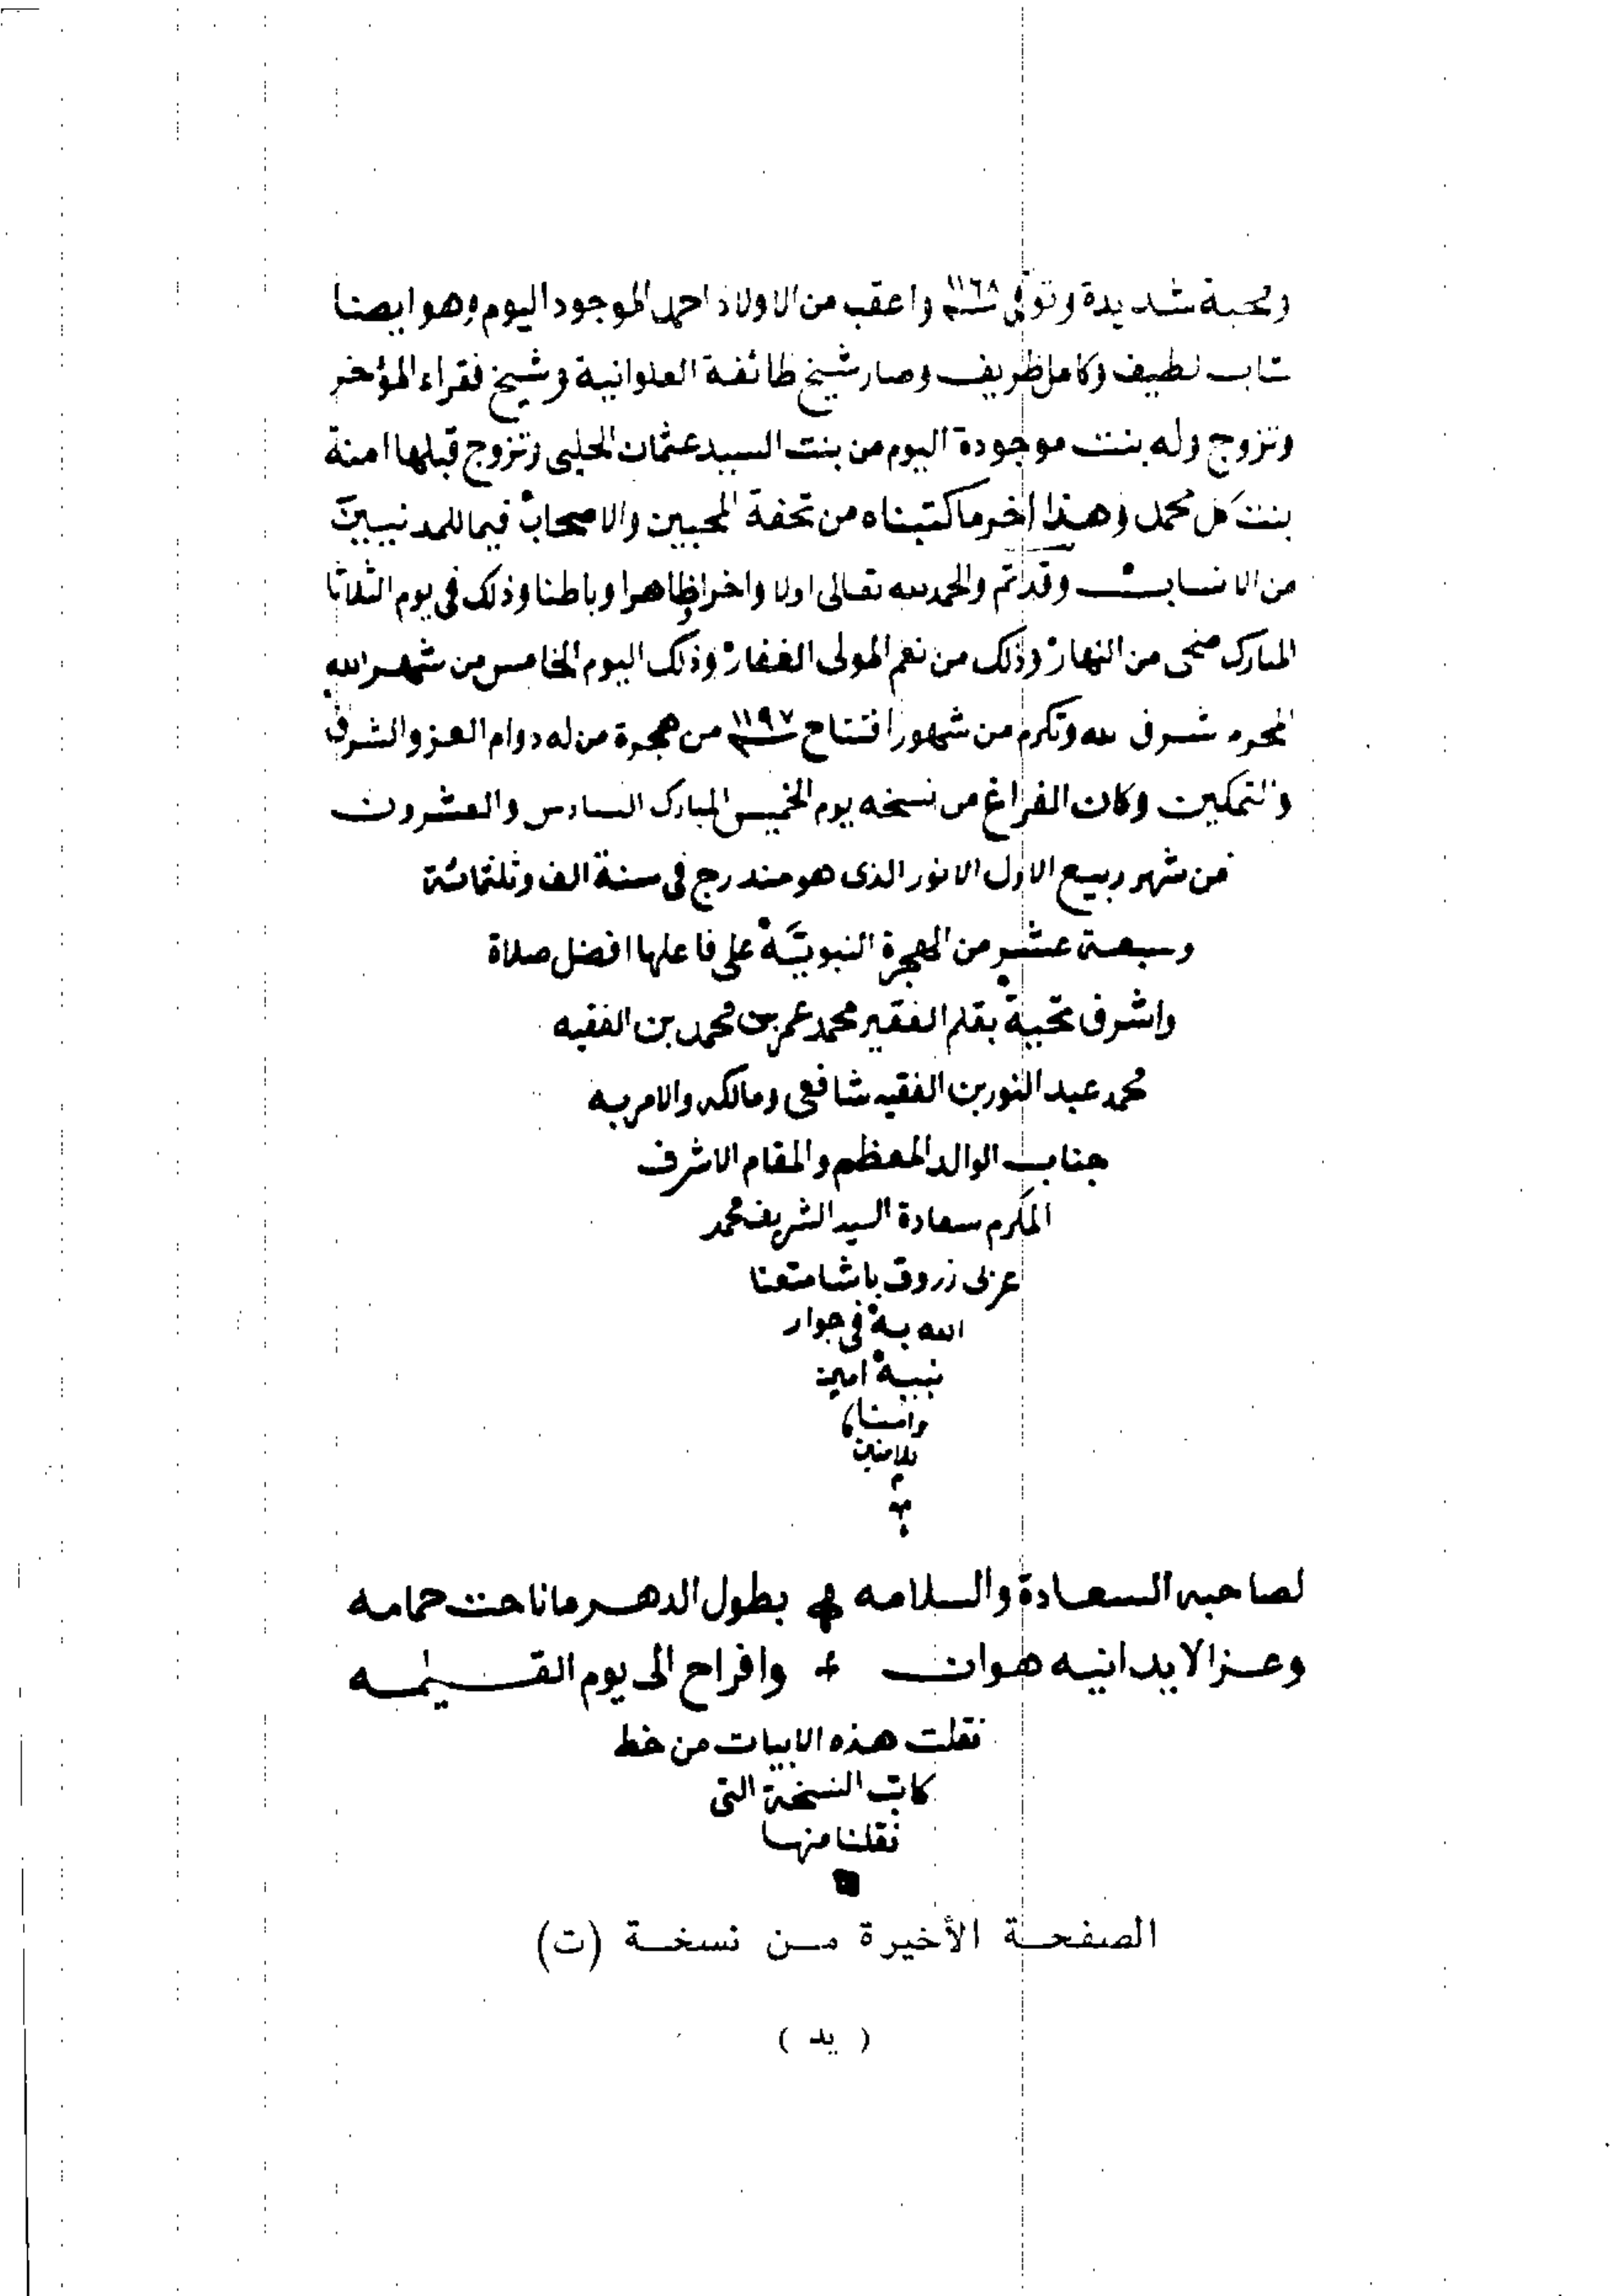 ومحبة شديدة وتوفي سنة ١١٦٨ واعقب من الاولاد احمد الموجود اليوم وهو ايضا
شاب لطيف وكامل ظريف وصار شيخ طائفة العلوانية وشيخ فقراء المؤخر
وتزوج وله بنت موجودة اليوم من بنت السيد عثمان الحلبى وتزوج قبلها امنة
بنت كل محمد وهذا اخر ما كتبناه من تحفة المحبين والاصحاب فيما للمدنيين
من الانساب وقد تم والحمد لله تعالى اولا واخرا وظاهرا وباطنا وذلك فى يوم الثلاثا
المبارك ضحى من النهار وذلك من نعم المولى الغفار وذلك اليوم الخامس من شهر الله
المحرم شرف لله وتكرم من شهور افتتاح سنة ١١٩٧ من هجرة من له دوام العز والشرف
والتمكين وكان الفراغ من نسخه يوم الخميس المبارك السادس والعشرون
من شهر ربيع الاول الانور الذى هو مندرج فى سنة الف وثلثمائة
وسبعة عشر من الهجرة النبوية على فاعلها افضل صلاة
واشرف تحية بقلم الفقير محمد عمر بن محمد بن الفقيه
محمد عبد النور بن الفقيه شافعى ومالكه والامر به
جناب الوالد المعظم والمقام الاشرف
المكرم سعادة السيد الشريف محمد
عزلى زروق باشا متعنا
الله به فى جوار
نبيه امين
وامنا
للامنين
م
لصاحبه السعادة والسلامه بطول الدهر ما ناحت حمامه
وعز لا يدانيه هوان وافراح الى يوم القيمه
نقلت هذه الابيات من خط
كاتب النسخة التى
نقلنا منها
الصفحة الأخيرة من نسخة (ت)
( يد )